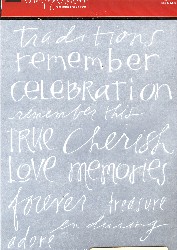 traditions
remember
CELEBRATION
remember this
TRUE Cherish
love memories
forever treasure
enduring
adore